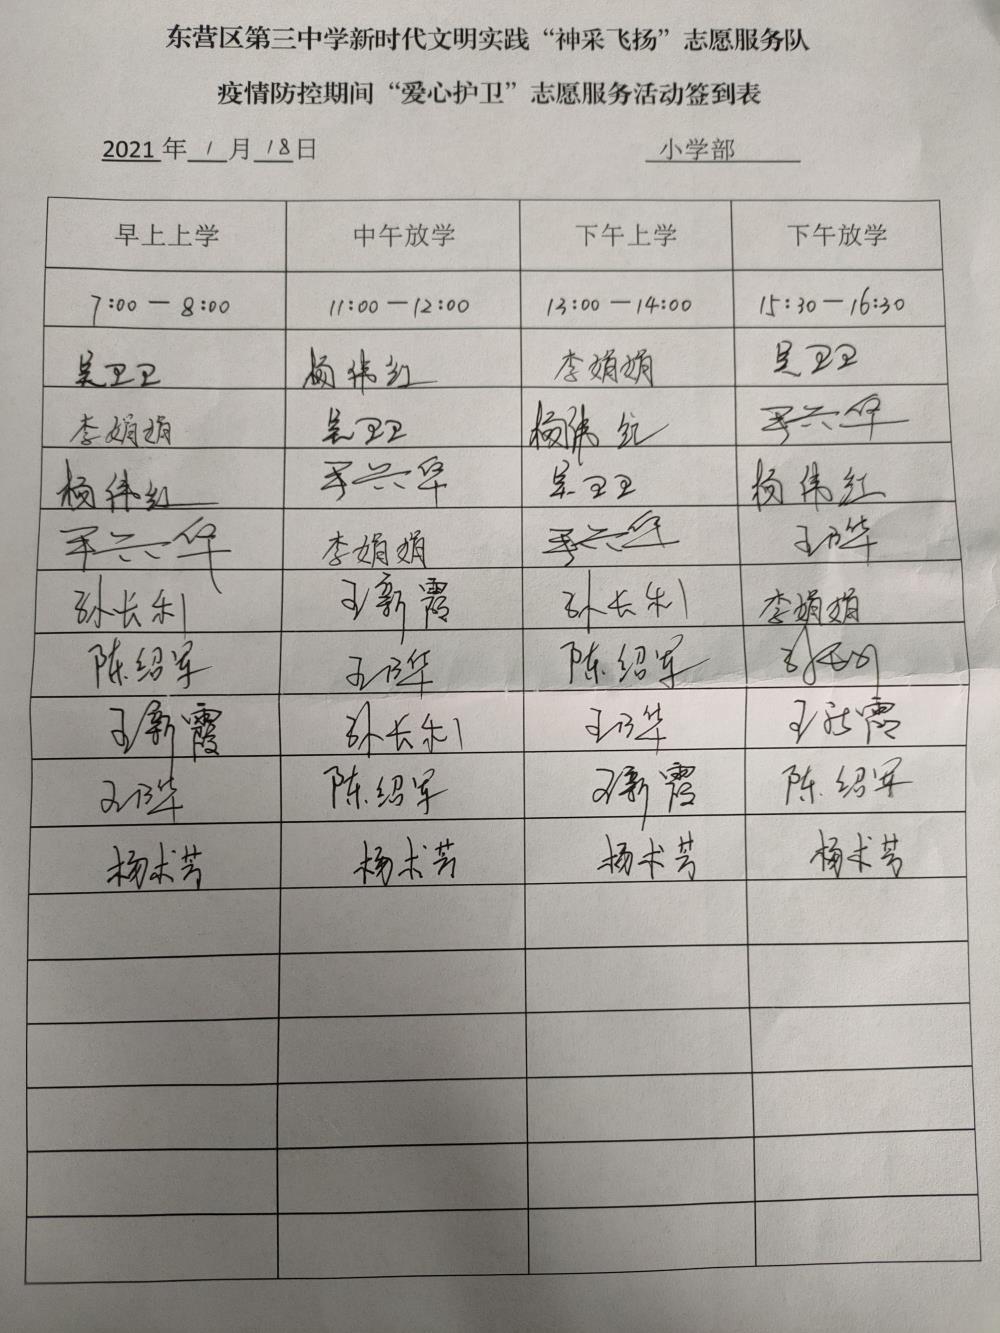 东营区第三中学新时代文明实践“神采飞扬”志愿服务队
疫情防控期间“爱心护卫”志愿服务活动签到表
2021年1月18日 小学部
早上上学 中午放学 下午上学 下午放学
7:00－8:00 11:00－12:00 13:00－14:00 15:30－16:30
吴卫卫 杨伟红 李娟娟 吴卫卫
李娟娟 吴卫卫 杨伟红
杨伟红 吴卫卫 杨伟红
李娟娟
孙长利 王新霞 孙长利 李娟娟
陈绍军 陈绍军 孙长利
王新霞 孙长利 王新霞
陈绍军 王新霞 陈绍军
杨术芳 杨术芳 杨术芳 杨术芳